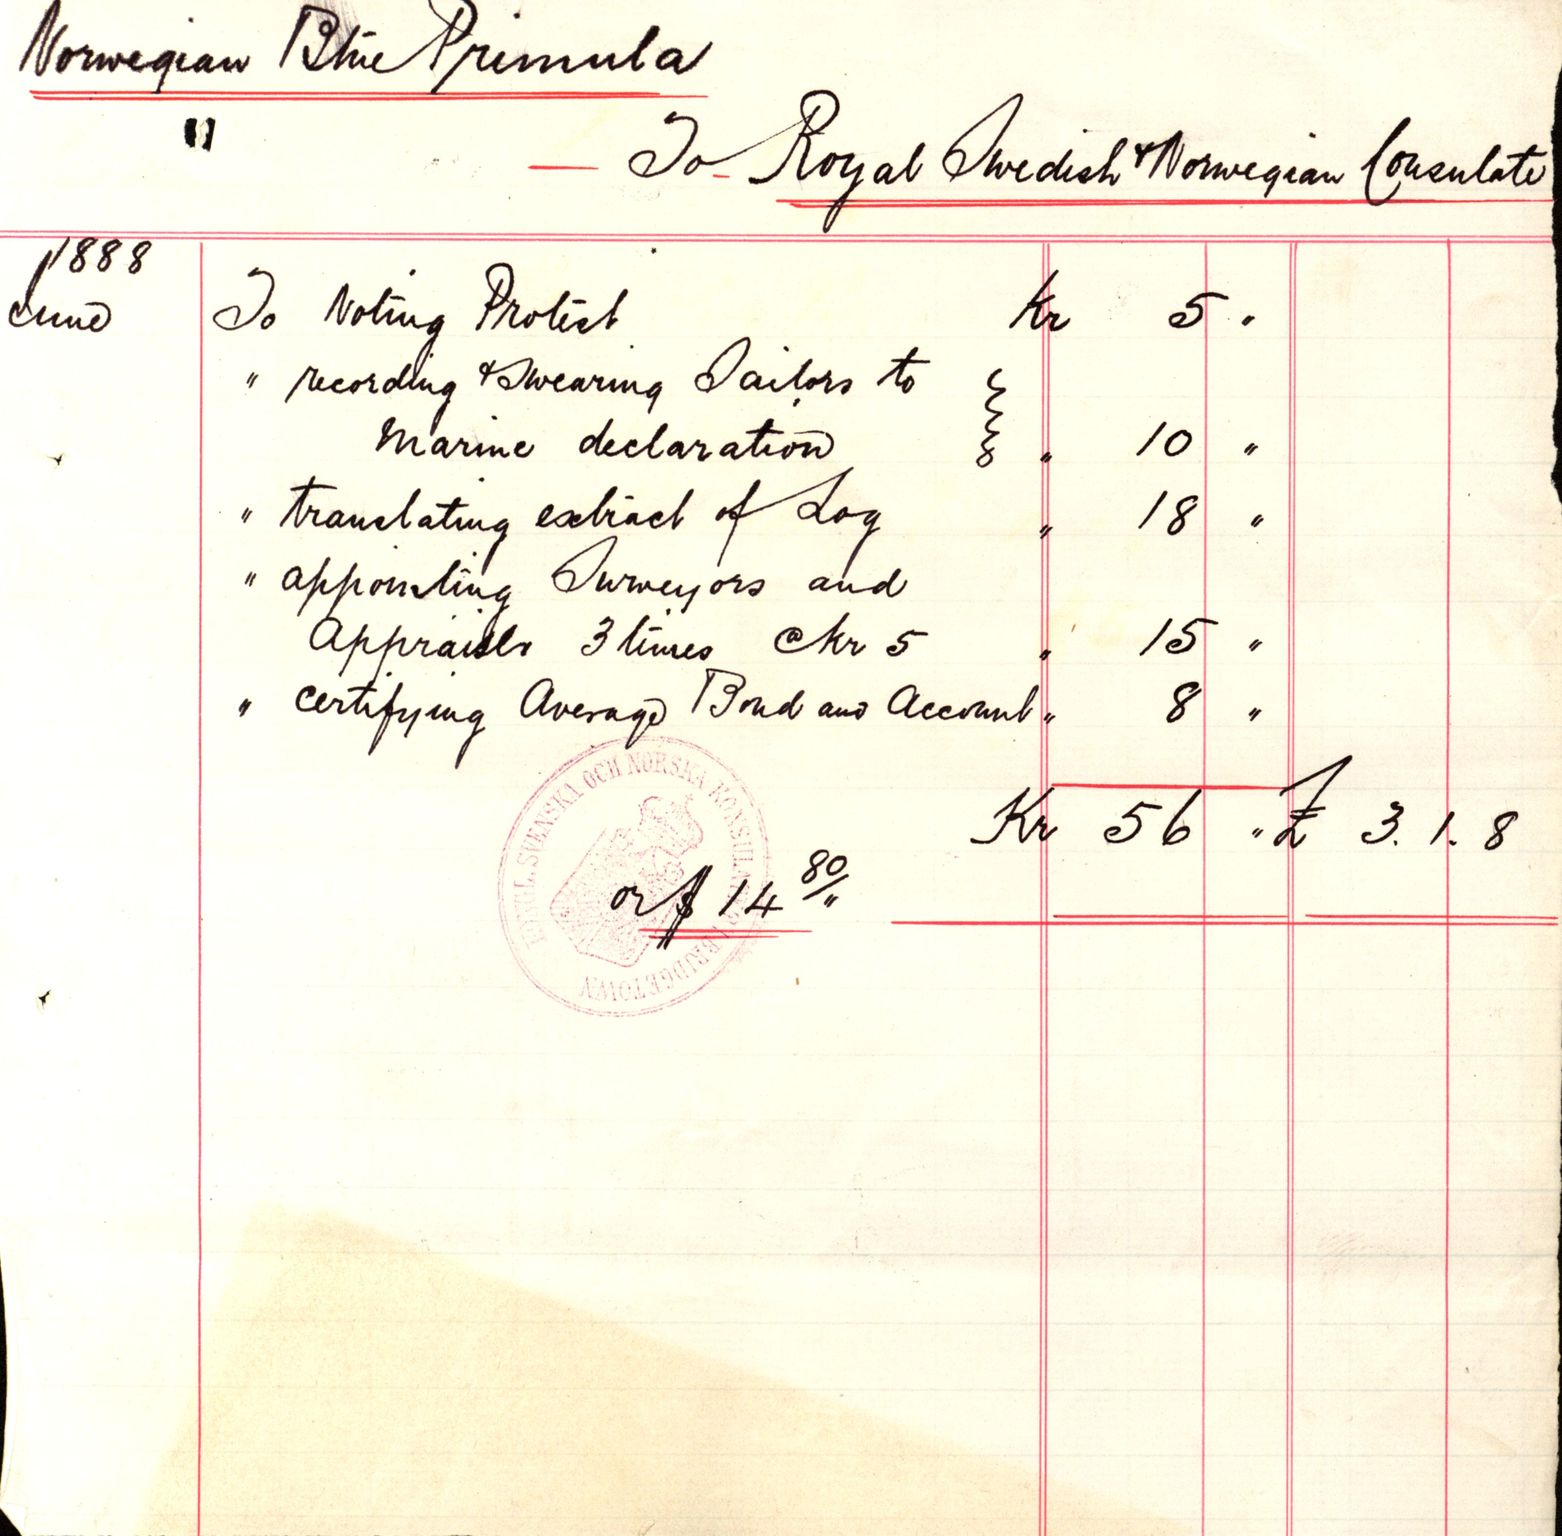 Norwegian Btne Primula
"
— To Royal Swedish & Norwegian Consulate
1888
June To Noting Protest Kr 5 "
" recording & Swearing Sailors to
Marine declaration " 10 "
" translating extract of Log " 18 "
" appointing Surveyors and
Appraisers 3 times @ Kr 5 " 15 "
" certifying Average Bond and Account " 8 "
Kr 56 " £ 3. 1. 8
or $ 14 80/"
KONGL. SVENSKA OCH NORSKA KONSUL BRIDGETOWN